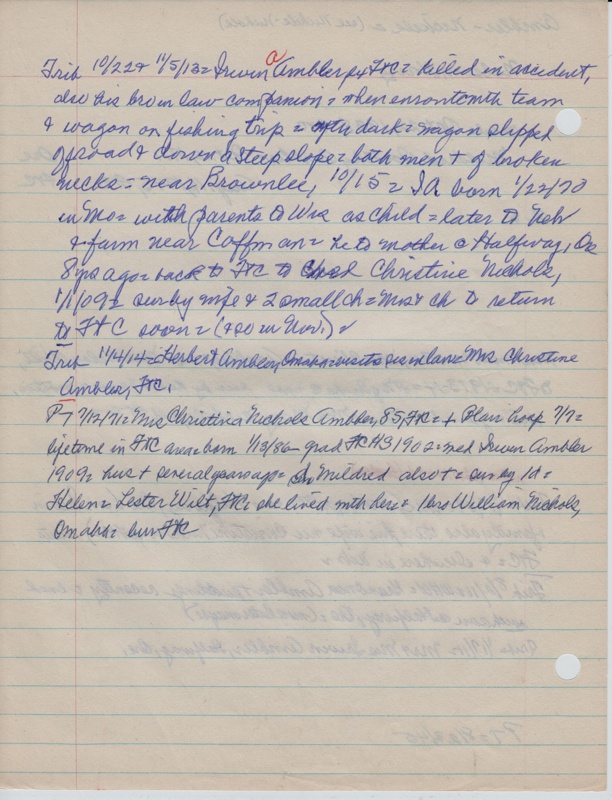 a
Trib 10/22 & 11/5/13 = Irwin Ambler px FtC = killed in accident,
also his bro in law companion = when enroute with team
& wagon on fishing trip = after dark = wagon slipped
off road & down a steep slope = both men + of broken
necks = near Brownlee, 10/15 = IA born 1/22/70
in Mo = with parents to Wis as child = later to Neb
& farm near Coffman = he to mother @ Halfway, Ore
8 yrs ago = back to FtC to Christine Nichols,
1/1/09 = surv by wife & 2 small ch = Mrs & ch to return
to FtC soon = (+so in Nov.)
Trib 11/14/14 = Herbert Ambler, Omaha visits sis in law Mrs Christine
Ambler, FtC.
PT 7/12/71 = Mrs Christina Nichols Ambler, 85, FtC = + Blair hosp 7/7 =
lifetime in FtC area = born 1/13/86 - grad FCHS 1902 = med Irwin Ambler
1909 = hus + several years ago = Mildred also + = surv by 1d =
Helen = Lester Wilt, FtC = she lived with her = 1 bro William Nichols,
Omaha = bur FtC